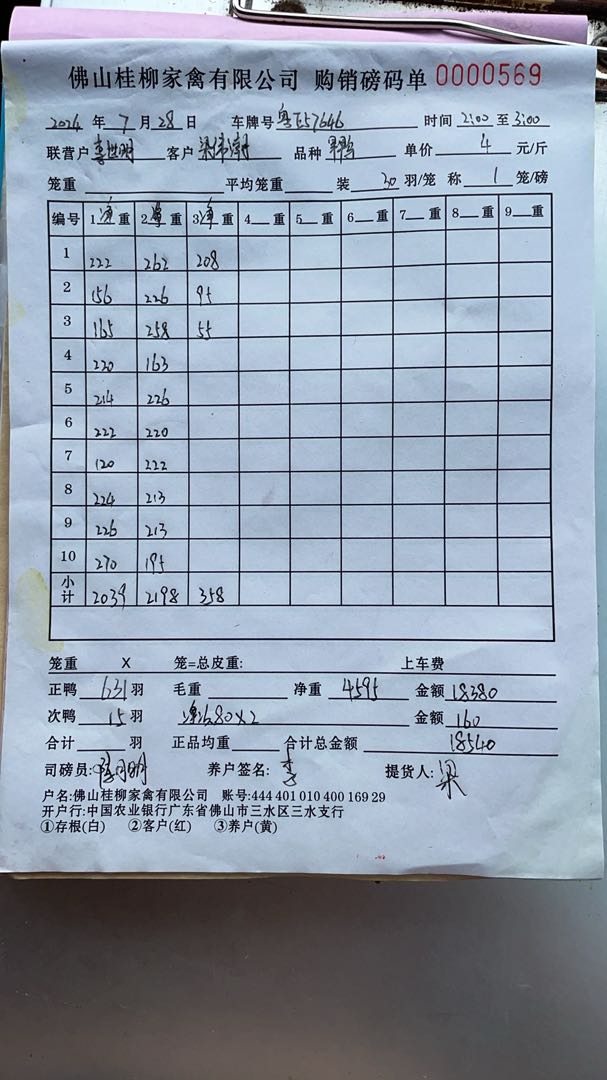 佛山桂柳家禽有限公司 购销磅码单 0000569
2024 年 7 月 28 日 车牌号 粤E57646 时间 2:00 至 3:00
联营户 李世明 客户 品种 单价 4 元/斤
笼重 平均笼重 装 30 羽/笼 称 1 笼/磅
编号 1 净 重 2 重 3 净 重 4 重 5 重 6 重 7 重 8 重 9 重
1 222 262 208
2 156 226 95
3 165 258 55
4 220 163
5 214 226
6 222 220
7 120 222
8 224 213
9 226 213
10 270 195
小计 2039 2198 358
笼重 X 笼=总皮重: 上车费
正鸭 631 羽 毛重 净重 4595 金额 18380
次鸭 15 羽 净680x2 金额 160
合计 羽 正品均重 合计总金额 18540
司磅员: 养户签名: 李 提货人: 梁
户名:佛山桂柳家禽有限公司 账号:444 401 010 400 169 29
开户行:中国农业银行广东省佛山市三水区三水支行
①存根(白) ②客户(红) ③养户(黄)